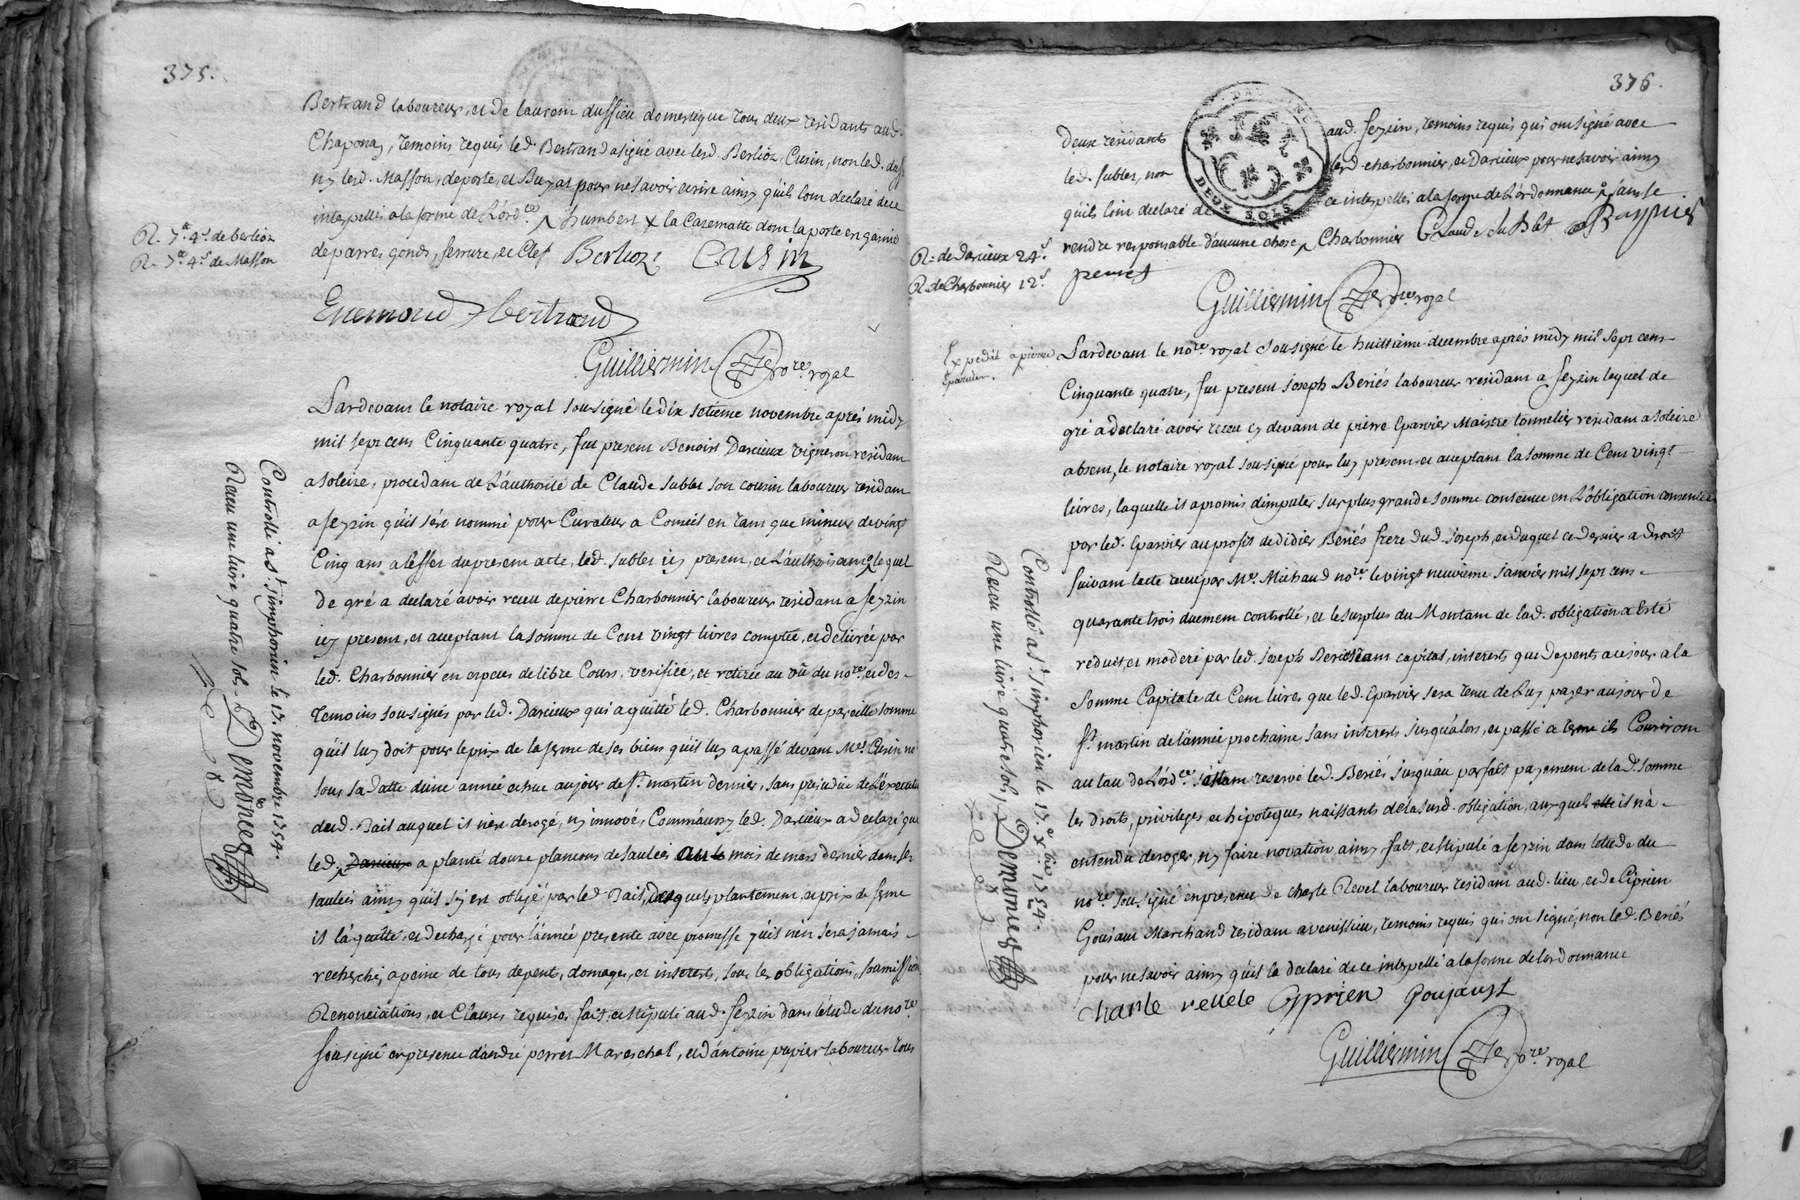 375.
Bertrand laboureur, et de laurein dussieu domestique tous deux residants aud.
Chaponay, temoins requis led. Bertrand a signé avec lesd. Berlioz, Cusin, non led. duss
ny lesd. Masson, deporte, et Buyat pour ne savoir ecrire ainsy qu'ils l'ont declaré de ce
interpellés a la forme de L'ord.ce humbert x la Casematte dont la porte en garnie
de parres gonds, serrure, et Clef Berlioz Cusin
R. 7.s 4.d de berlioz
R. 7.s 4.d de Masson
Enemond bertrand
Guilliermin no.re royal
Pardevant le notaire royal sousigné le dix setieme novembre aprés midy
mil sept cens Cinquante quatre, fut present Benoist Darcieux vigneron residant
a soleize, procedant de L'authorité de Claude sublet son cousin laboureur residant
a seyzin qu'il s'est nommé pour Curateur a Conseil en tant que mineur de vingt
Cinq ans a l'effet du present acte, led. sublet icy present, et L'authorisant, lequel
de gré a declaré avoir receu de pierre Charbonnier laboureur residant a seyzin
icy present, et acceptant la somme de Cent vingt livres comptée, et delivrée par
led. Charbonnier en especes de libre Cours, verifiée, et retirée au vû du no.re et des
temoins sousignés par led. Darcieux qui a quitté led. Charbonnier de pareille somme
qu'il luy doit pour le prix de la ferme de ses biens qu'il luy a passé devant M.e Cusin no
sous sa datte d'une année echue au jour de s.t martin dernier, sans prejudice de L'execution
dud. Bail auquel il n'est derogé, ny innové, Comm'aussy led. Darcieux a declaré que
led. Darcieux a planté douze plancons de saules au mois de mars dernier dans les
saulées ainsy qu'il s'y est obligé par led. Bail, desquels plantement, et prix de ferme
il l'a quitté, et dechargé pour l'année presente avec promesse qu'il n'en sera jamais
recherché, a peine de tous depent, domages, et interets, sous les obligations, soumissions
Renonciations, et Clauses requises fait, et stipulé aud. seyzin dans l'etude du no.re
sousigné en presence d'andré perret Mareschal, et d'antoine papier laboureur tous
Controllé a s.t simphorien le 17. novembre 1754.
Receu une livre quatre sols. Demonier
376.
DEUX SOLS
deux residants aud. seyzin, temoins requis qui ont signé avec
led. sublet, non lesd. charbonnier, et Darcieux pour ne savoir ainsy
qu'ils l'ont declaré de ce interpellés a la forme de L'ordonnance sans se
rendre responsable d'aucune chose, Charbonnier Claude sublet Pappier
R. de Darcieux 24.s
R. de Charbonnier 12.s
perret
Guilliermin no.re royal
Expedié a pierre
Eparvier.
Pardevant le no.re royal sousigné le huitieme decembre aprés midy mil sept cens
Cinquante quatre, fut present Joseph Beriés laboureur residant a seyzin lequel de
gré a declaré avoir receu cy devant de pierre Eparvier Maistre tonnelier residant a soleize
absent, le notaire royal sousigné pour luy present, et acceptant la somme de Cent vingt
livres, laquelle il a promis d'imputer sur plus grande somme contenue en L'obligation consentie
par led. Eparvier au profit de didier Beriés frere dud. Joseph, et duquel ce dernier a droit
suivant lacte receu par M.e Michaud no.re le vingt neuvieme janvier mil sept cens
quarante trois duement controllé, et le surplus du Montant de lad. obligation a esté
reduit, et moderé par led. Joseph Beriés tant capital, interets que depents a ce jour a la
somme Capitale de Cent livres que led. Eparvier sera tenu de luy payer au jour de
s.t martin de l'année prochaine sans interets jusqu'alors, et passé ce terme ils Courreront
au taux de L'ord.ce s'estant reservé led. Beriés jusqu'au parfait payement de lad. somme
les droits, privileges, et hipoteques naissants de la susd. obligation, auxquels il n'a
entendu deroger, ny faire novation ainsy fait, et stipulé a seyzin dans l'etude du
no.re sousigné en presence de charle Revel laboureur residant aud. lieu, et de Ciprien
Goujaux Marchand residant a venissieu, temoins requis qui ont signé, non led. Beriés
pour ne savoir ainsy qu'il la declaré de ce interpellé a la forme de l'ordonnance
charle revele Cyprien Goujaust
Guilliermin no.re royal
Controllé a s.t simphorien le 17. x.bre 1754.
Receu une livre quatre sols, Demonier